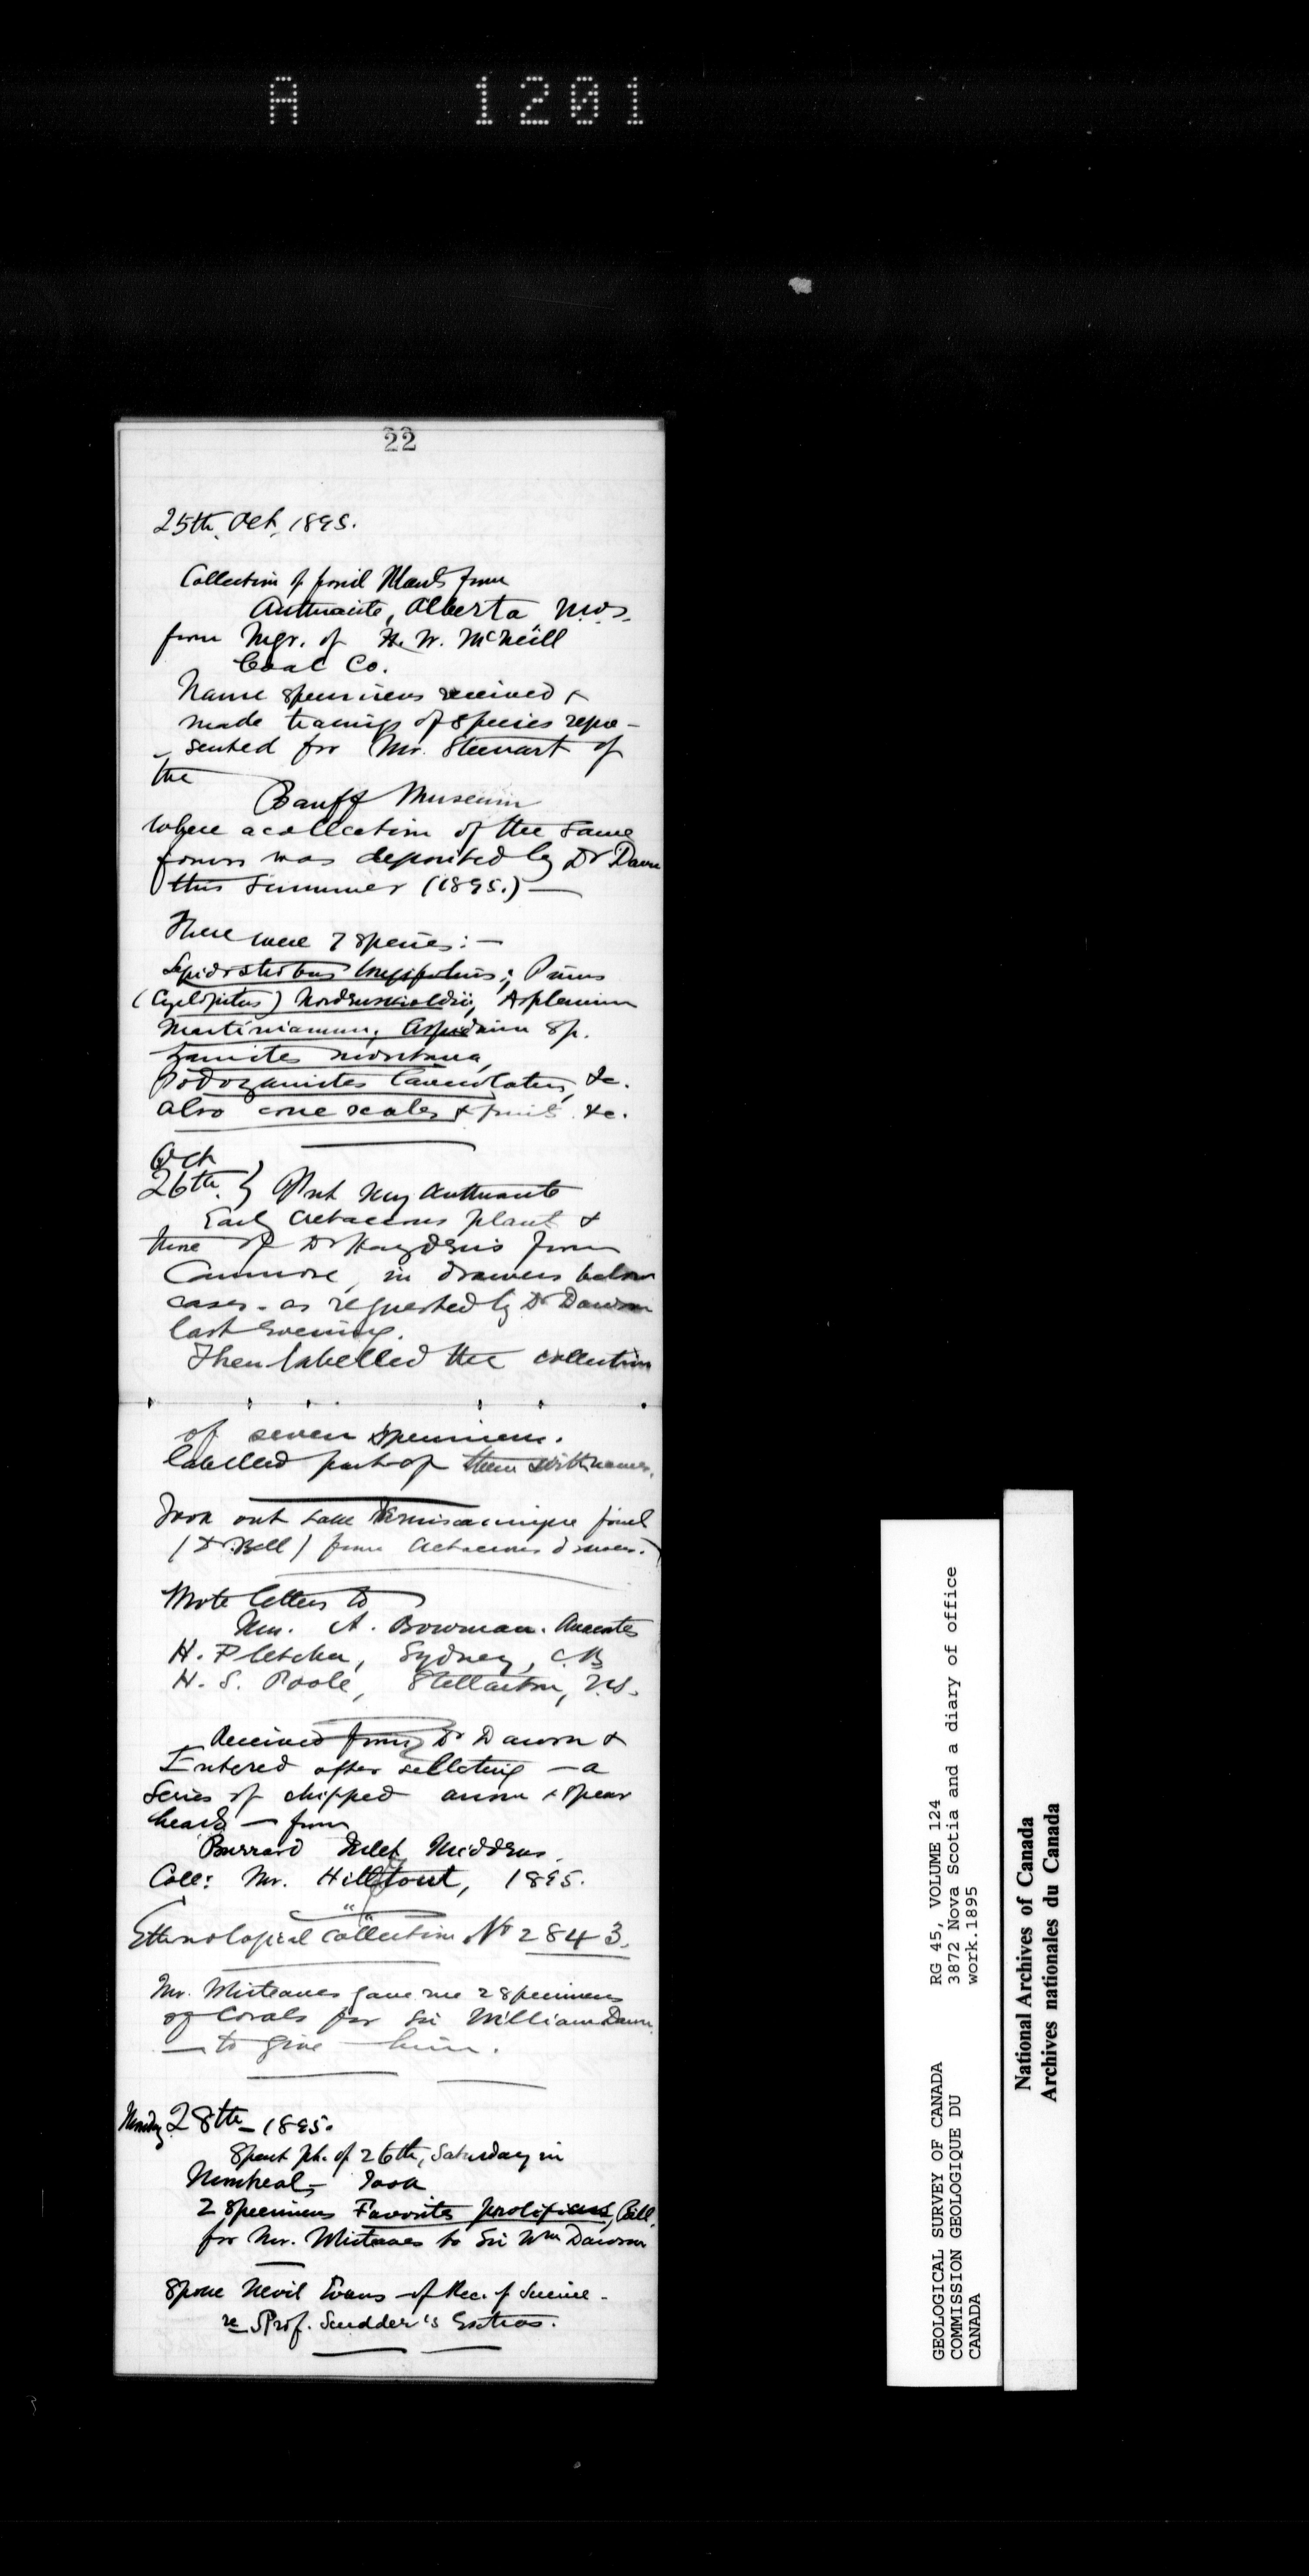 A 1201
22
25th. Oct. 1895.
Collection of fossil Plants from
Anthracite, Alberta N.W.T.
from Mgr. of H. W. McNeill
Coal Co.
Name specimens received &
made tracings of species repre-
sented for Mr. Stewart of
the
Banff Museum
where a collection of the same
forms was deposited by Dr Daw
this Summer (1895.) —
There were 7 species: —
Lepidostrobus longifolius; Pinus
(Cyclopitus) Nordenskioldii, Asplenium
Martinianum, Aspidium sp.
Zamites montana,
Podozamites lanceolatus, &c.
also cone scales & fruits &c.
Oct
26th. } Put my Anthracite
Early Cretaceous plants &
those of Dr Haydens from
Canmore, in drawers below
cases - as requested by Dr Dawson
last evening.
Then labelled the collection
of seven specimens.
labelled part of them with names.
Took out Lake Temiscamingue fossil
(Dr. Bell) from Cretaceous drawer.)
Wrote letters to
Mrs. A. Bowman.
H. Fletcher, Sydney, C.B.
H. S. Poole, Stellarton, N.S.
Received from Dr Dawson &
Entered after selecting — a
Series of chipped arrow & spear
heads — from
Burrard Inlet Middens.
Coll: Mr. Hill-tout, 1895.
Ethnological Collection No 2843.
Mr. Whiteaves gave me 2 specimens
of Corals for Sir William Dawn
— to give him.
Monday 28th — 1895.
Spent pt. of 26th, Saturday in
Montreal, — Took
2 specimens Favosites prolificus, Bill.
for Mr. Whiteaves to Sir Wm Dawson
Spoke Nevil Evans — of Rec. of Science -
re Prof. Scudder's Extras.
GEOLOGICAL SURVEY OF CANADA
COMMISSION GEOLOGIQUE DU
CANADA
RG 45, VOLUME 124
3872 Nova Scotia and a diary of office
work.1895
National Archives of Canada
Archives nationales du Canada